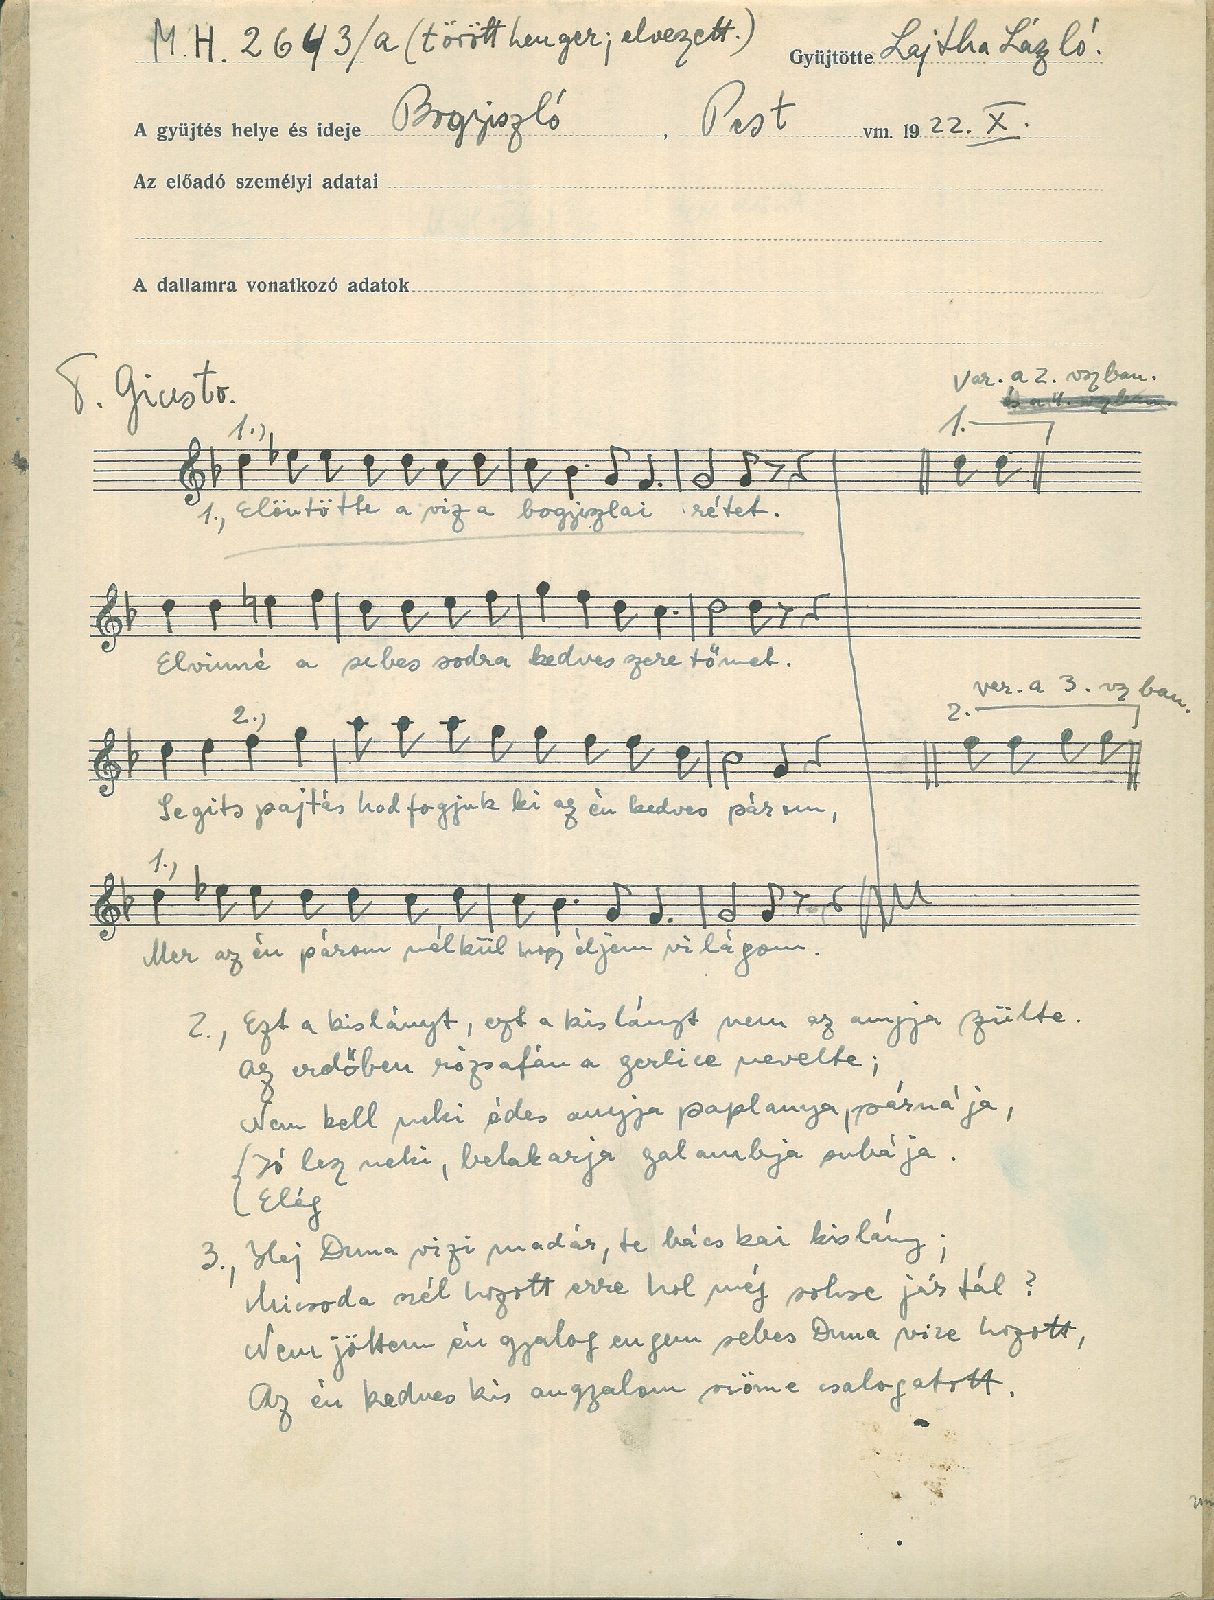 M. H. 2643/a (törött henger; elveszett.) Gyüjtötte Lajtha László.
A gyüjtés helye és ideje Bogyiszló, Pest vm. 1922. X.
Az előadó személyi adatai
A dallamra vonatkozó adatok
T. Giusto.
Var. a 2. vszban.
1.) 1.
1., Elöntötte a viz a bogyizlai rétet.
Elvinné a sebes sodra kedves szeretőmet.
var. a 3. vszban.
2.) 2.
Segits pajtás had fogjuk ki az én kedves párom,
1.,
Mer az én párom nélkül hogy éljem világom.
2., Ezt a kislányt, ezt a kislányt nem az anyja szülte.
Az erdőben rózsafán a gerlice nevelte;
Nem kell neki édes anyja paplanya, párnája,
Jó lesz neki, betakarja galambja subája.
Elég
3., Hej Duna vizi madár, te bácskai kislány;
Micsoda szél hozott erre hol még sohse jártál?
Nem jöttem én gyalog engem sebes Duna vize hozott,
Az én kedves kis angyalom szöme csalogatott.